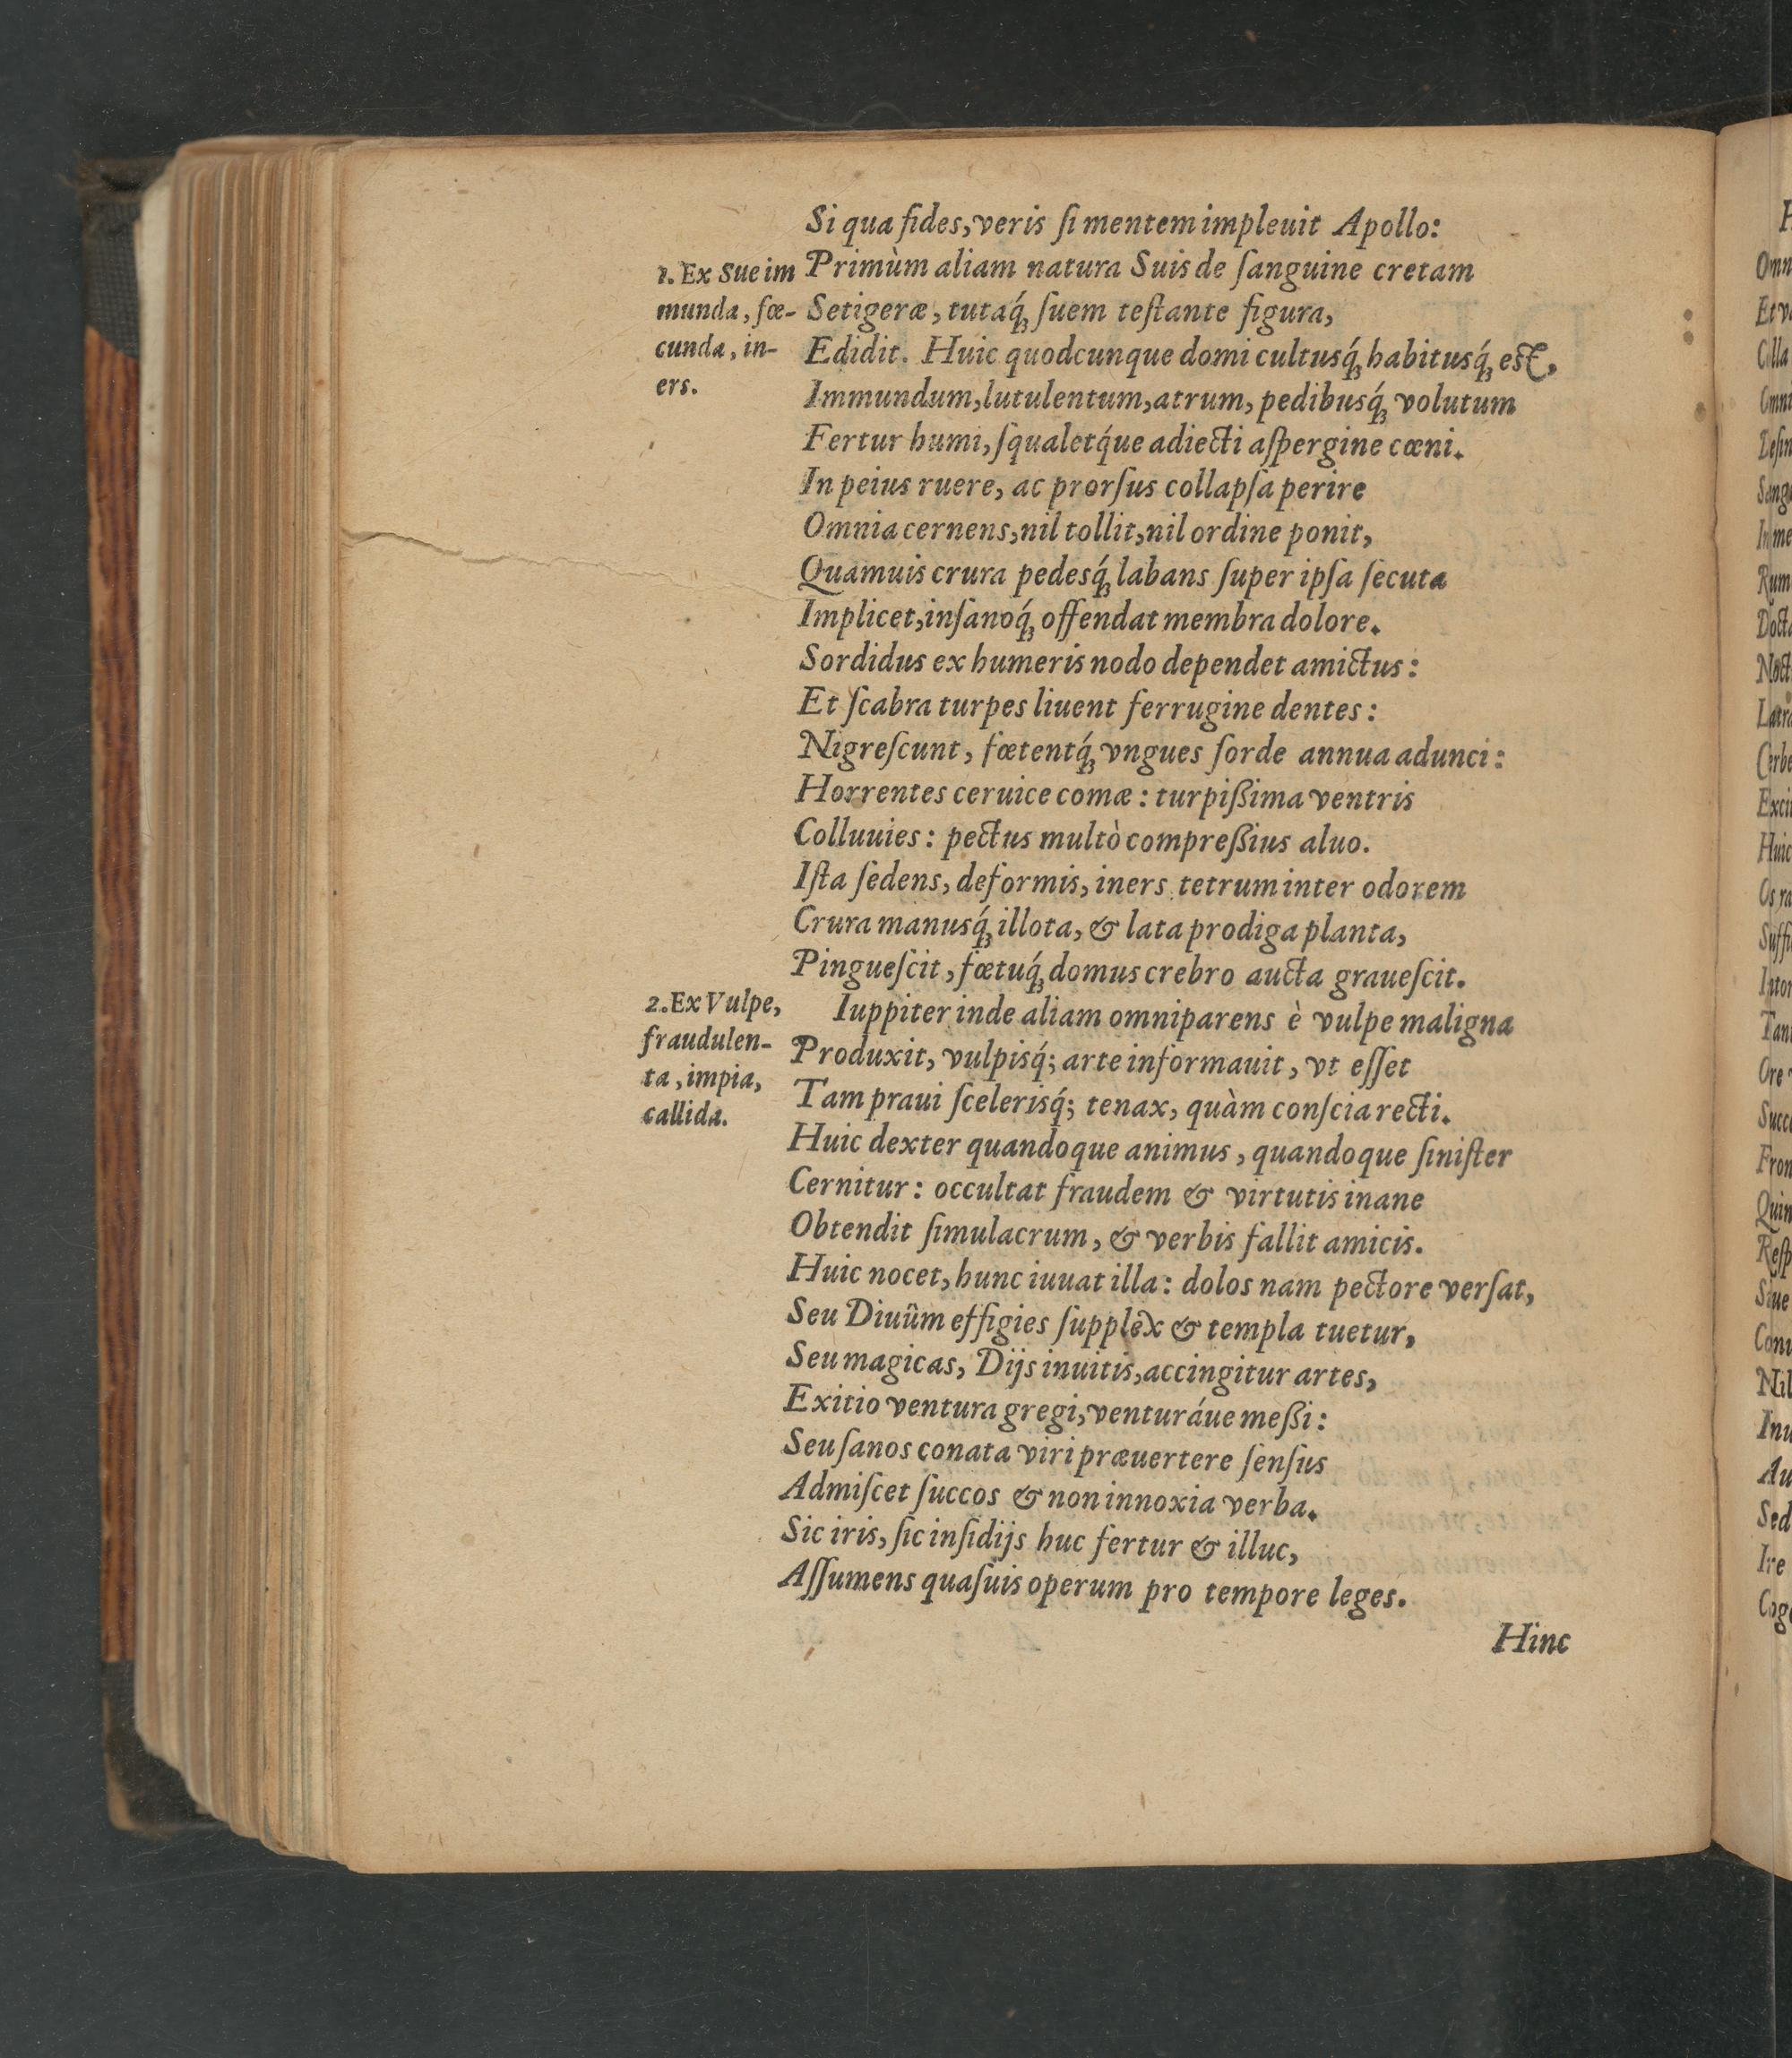 Si qua fides, veris ſi mentem impleuit Apollo:
1. Ex Sue im
munda, fœ-
cunda, in-
ers.
Primùm aliam natura Suis de ſanguine cretam
Setigeræ, tutaq́ꝫ ſuem teſtante figura,
Edidit. Huic quodcunque domi cultusq́ꝫ habitusq́ꝫ est,
Immundum, lutulentum, atrum, pedibusq́ꝫ volutum
Fertur humi, ſqualetq́ue adiecti aſpergine cœni.
In peius ruere, ac prorſus collapſa perire
Omnia cernens, nil tollit, nil ordine ponit,
Quamuis crura pedesq́ꝫ labans ſuper ipſa ſecuta
Implicet, inſanoq́ꝫ offendat membra dolore.
Sordidus ex humeris nodo dependet amictus:
Et ſcabra turpes liuent ferrugine dentes:
Nigreſcunt, fœtentq́ꝫ vngues ſorde annua adunci:
Horrentes ceruice comæ: turpißima ventris
Colluuies: pectus multò compreßius aluo.
Iſta ſedens, deformis, iners tetrum inter odorem
Crura manusq́ꝫ illota, & lata prodiga planta,
Pingueſcit, fœtuq́ꝫ domus crebro aucta graueſcit.
2. Ex Vulpe,
fraudulen-
ta, impia,
callida.
Iuppiter inde aliam omniparens è vulpe maligna
Produxit, vulpisq́; arte informauit, vt eſſet
Tam praui ſcelerisq́; tenax, quàm conſcia recti.
Huic dexter quandoque animus, quandoque ſiniſter
Cernitur: occultat fraudem & virtutis inane
Obtendit ſimulacrum, & verbis fallit amicis.
Huic nocet, hunc iuuat illa: dolos nam pectore verſat,
Seu Diuûm effigies ſupplex & templa tuetur,
Seu magicas, Dijs inuitis, accingitur artes,
Exitio ventura gregi, venturáue meßi:
Seu ſanos conata viri præuertere ſenſus
Admiſcet ſuccos & non innoxia verba.
Sic iris, ſic inſidijs huc fertur & illuc,
Aſſumens quaſuis operum pro tempore leges.
Hinc